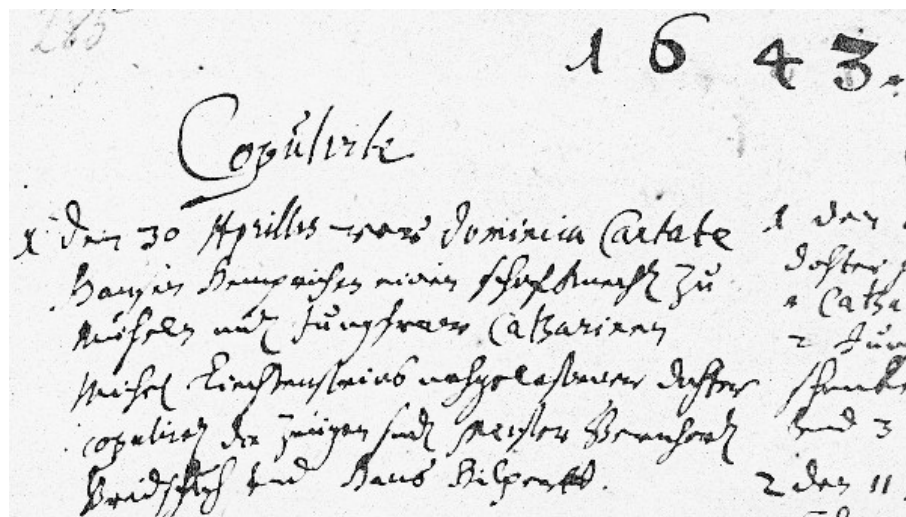 265
1643.
Copulirte
1 den 30 Aprilis war dominica Cantate
Hansen einen schaffknecht zu
Mücheln mit Jungfraw Catharinen
Michel Liechtensteins nachgelassener dochter
copuliret die zeugen sindt Meister Bernhardt
und Hans Hilpertt.
1 den
dochter
Catha
2 Jun
schenke
und 3
2 den 11